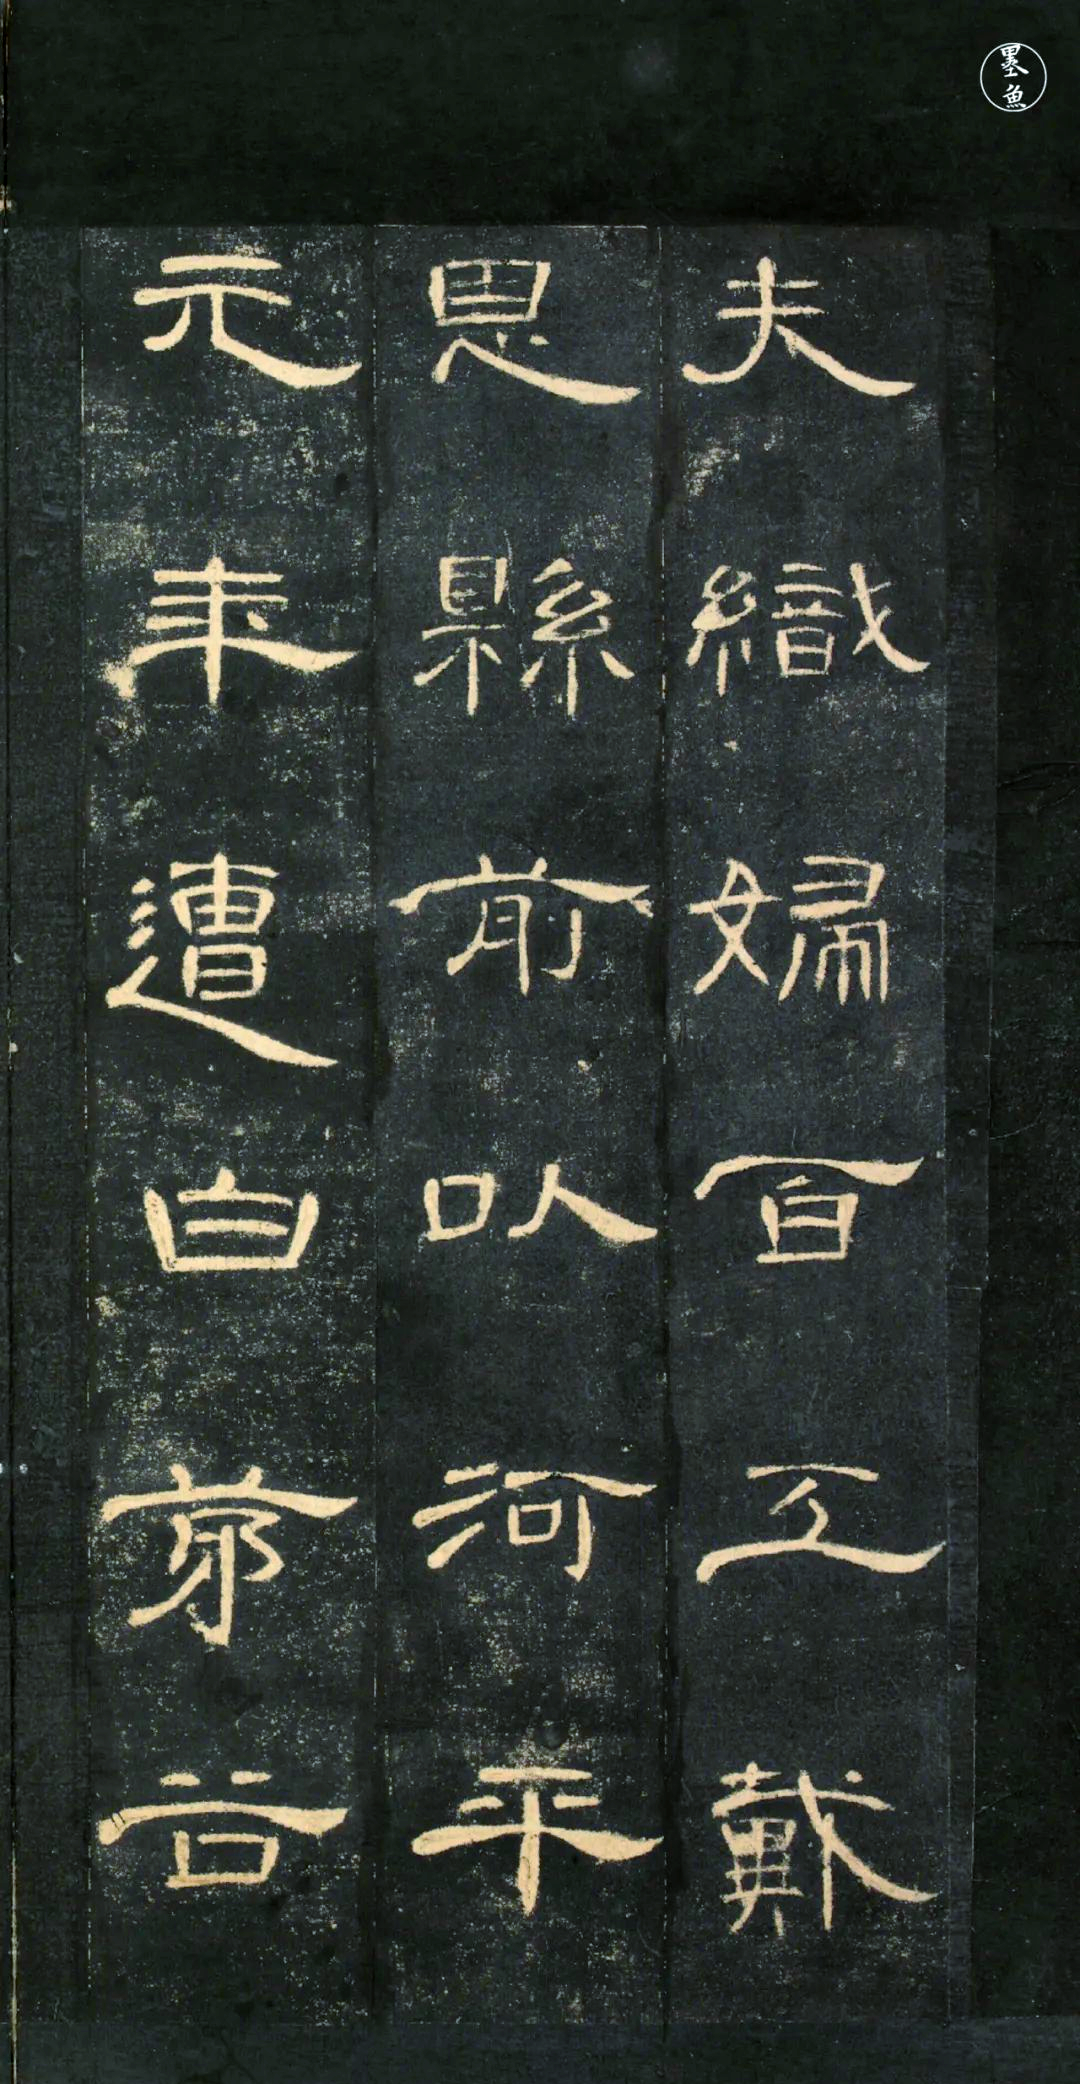 夫織婦百工戴
恩縣前以河平
元年遭白茅谷
墨魚